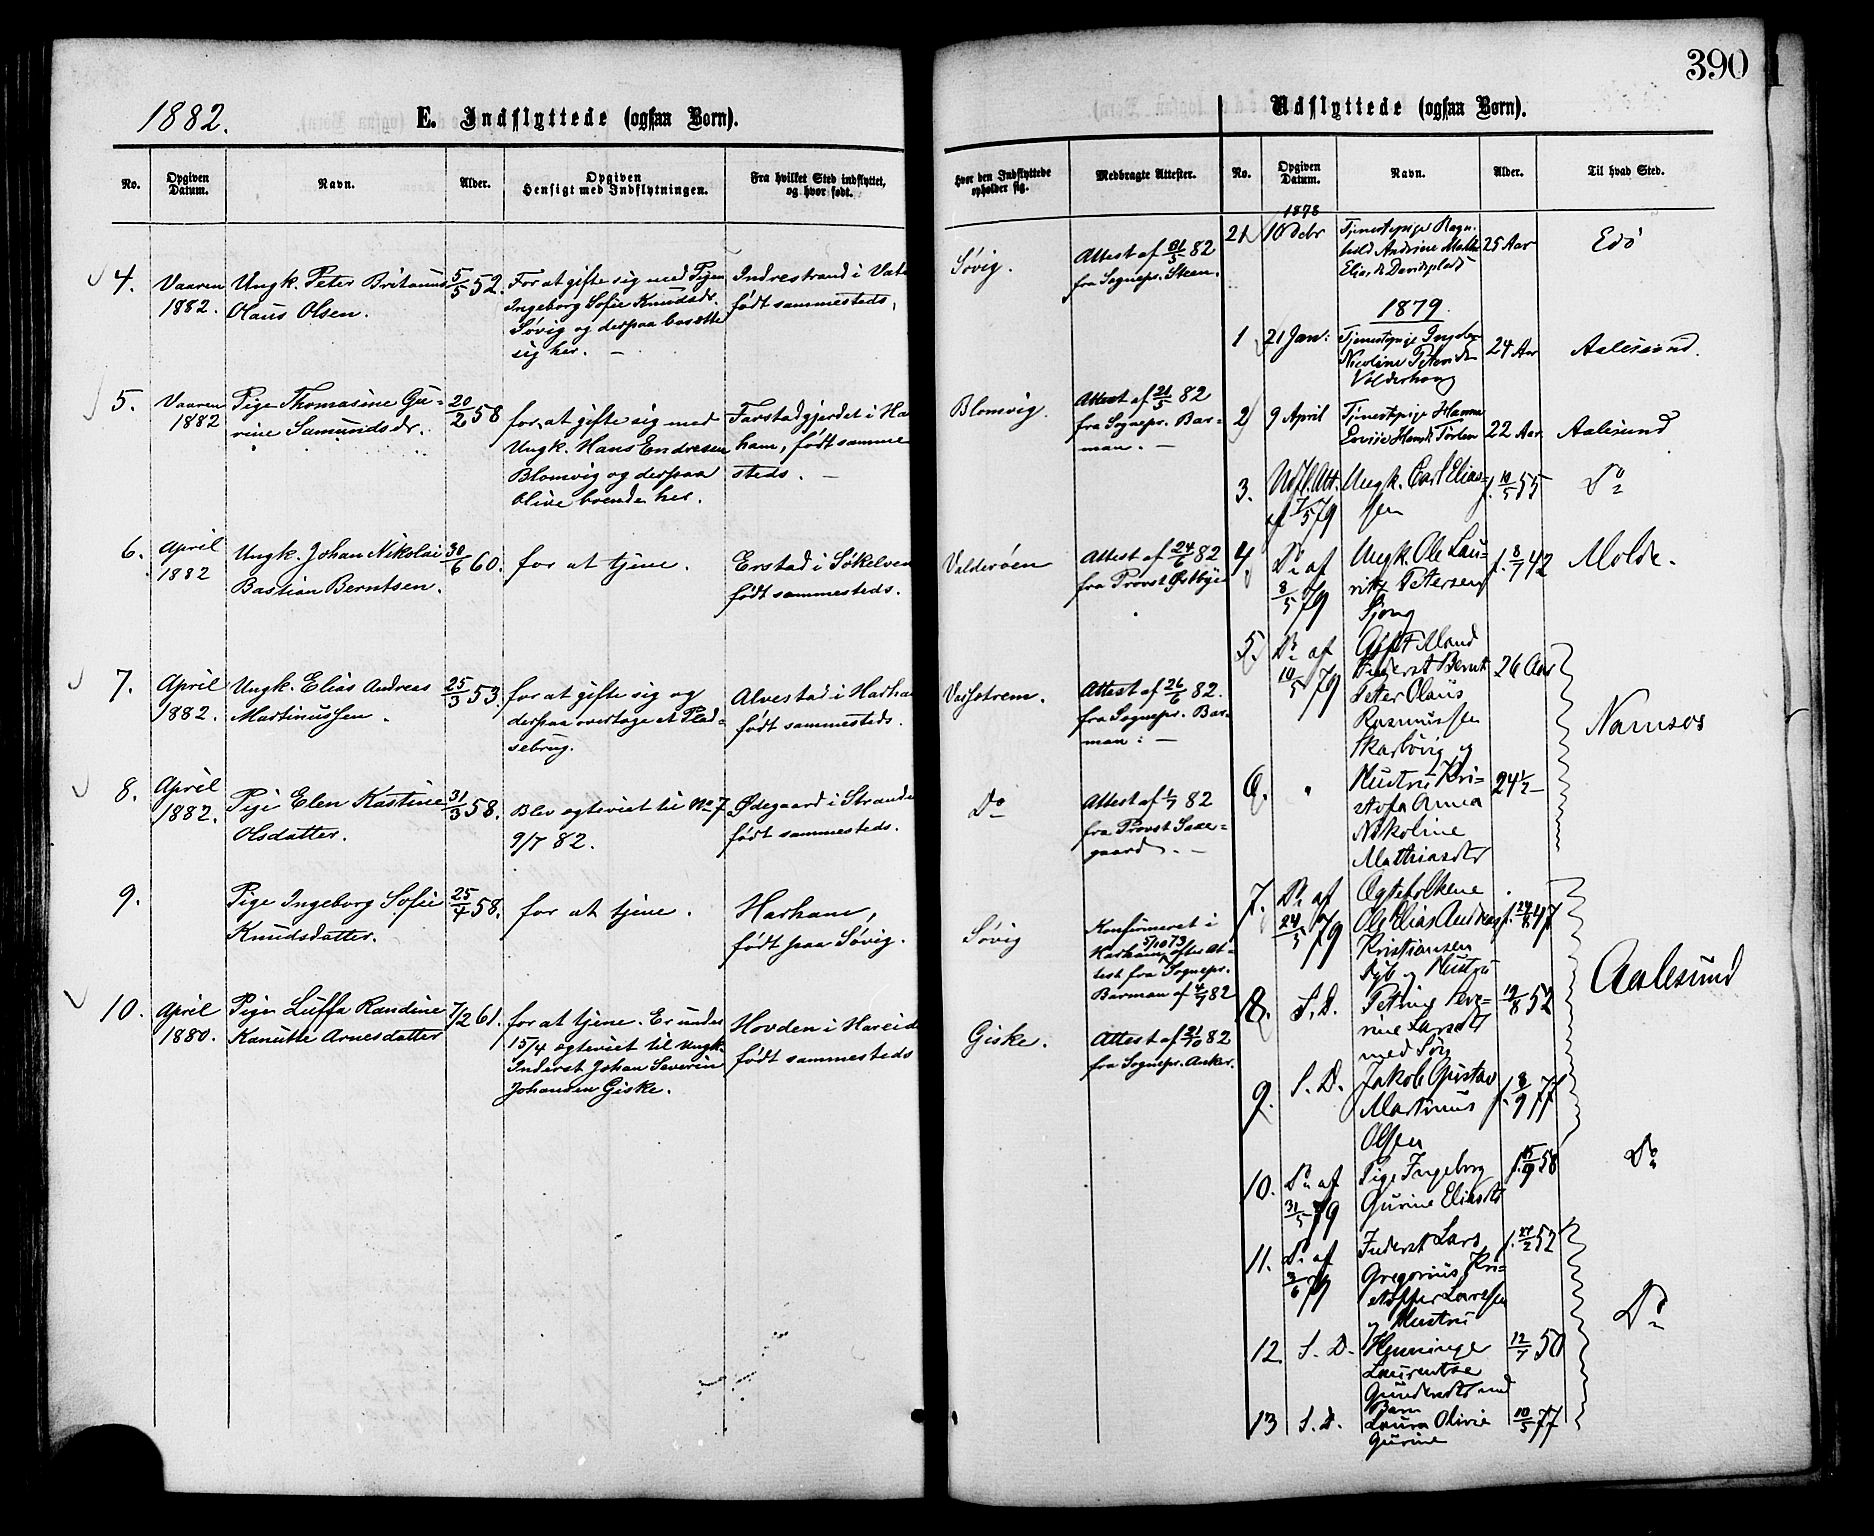 390
1882.
E. Indflyttede (ogsaa Børn).
No.
Opgiven
Datum.
Navn.
Alder.
Opgiven
Hensigt med Indflytningen.
Fra hvilket Sted indflyttet,
og hvor født.
Hvor den Indflyttede
opholder sig.
Medbragte Attester.
4. Vaaren Ungk. Peter Britanus 5/5 52. For at gifte sig med Pigen Indrestrand i Vat Søvig. Attest af 31/5 82
1882. Olaus Olsen. Ingeborg Sofie Knudsdr. født sammesteds, fra Sognepr. Steen.
Søvig og derpaa bosætte
sig her. —
5. Vaaren Pige Thomasine Gu- 20/2 58 for at gifte sig med Farstadgjerdet i Ha Blomvig. Attest af 21/5 82
1882 rine Samundsdr. Ungk. Hans Endresen ham, født samme fra Sognepr. Bar-
Blomvig og derpaa steds. — man. —
blive boende her.
6. April Ungk. Johan Nikolai 30/6 60. for at tjene. Erstad i Søkelven Valderøen Attest af 24/6 82
1882 Bastian Berntsen. født sammesteds. fra Provst Østbye
7. April Ungk. Elias Andreas 25/3 53. for at gifte sig og Alvestad i Harha Attest af 26/6 82.
1882. Martinussen. derpaa overtage et Plad- født sammesteds. fra Sognepr. Bar-
sebrug. man: —
8. April Pige Elen Kastine 31/3 58. Blev egteviet til No 7 Ødegaard i Strande Do Attest af 1/7 82
1882. Olsdatter. 9/7 82. født sammesteds. fra Provst Saae-
gaard. —
9. Pige Ingeborg Sofie 25/4 58. for at tjene. Harham, Søvig Konfirmeret i
Knudsdatter. født paa Søvig. Harham 5/10 73 efter At-
test fra Sognepr.
Barman af 4/7 82
10. April Pige Luffa Randine 7/2 61. for at tjene. Er under Hovden i Hareid Giske. Attest af 21/10 82
1880. Kanutte Arnesdatter 15/4 egteviet til Ungk. født sammesteds fra Sognepr. Anker.
Inderst Johan Severin
Johansen Giske.
Udflyttede (ogsaa Børn).
No.
Opgiven
Datum.
Navn.
Alder.
Til hvad Sted.
1878
21 10 Debr Tjenestepige Ragn- 25 Aar Edø
hild Andrine
1879
1 21 Jan: Tjenestepige 24 Aar Aalesund.
Nicoline
Valderhaug
2 9 April Tjenestepige Hanna 22 Aar Aalesund
3. Udfl. Att. Ungk. Carl Elias- f. 10/5 55 Do
af 7/5 79 sen
4 Do af Ungk. Ole Lau- f. 8/7 42 Molde.
8/5 79 ritz Petersen
5. Do af 26 Aar Namsos
10/5 79 Inderst Bernt
Peter Olaus
Rasmussen
Skarbøvig og
6. " Hustru Kri- 24 1/2
stofa Anna
Nikoline
Mathiasdtr
7. Do af Egtefolkene Aalesund
24/5 79 Ole Elias Andreas f. 24/8 47
Kristiansen
og Hustru
8. S. D. Petrine Seve- 12/8 52
rine Larsdtr
med Søn
9. S. D. Jakob Gustav f. 8/9 77
Martinus
Olsen
10. Do af Pige Ingeborg f. 15/9 58 Do
31/5 79 Gurine Eliasdtr
11. Do af Inderst Lars f. 27/2 52 Do
3/6 79 Gregorius Kri-
stoffer Larssen
og Hustru
12. S. D. Henninge 12/7 50
Laurentse
Gundersdtr med
Barn
13 S. D. Laura Olivie 10/5 77
Gurine